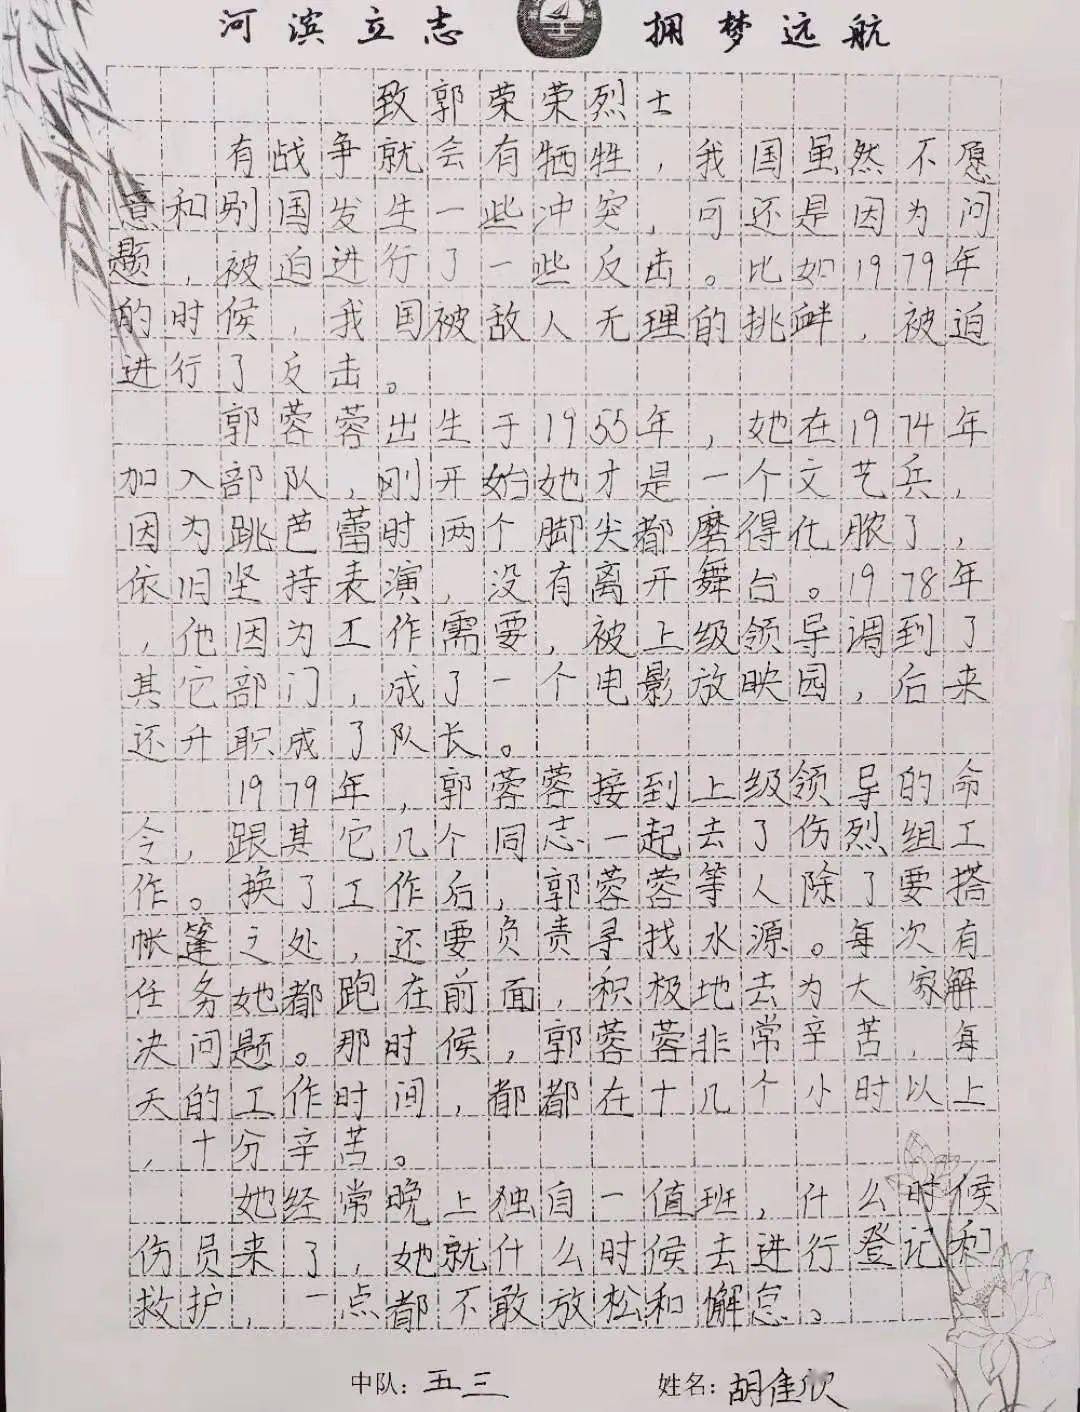 河滨立志 拥梦远航
致郭荣荣烈士
有战争就会有牺牲，我国虽然不愿
意和别国发生一些冲突，可还是因为问
题，被迫进行了一些反击。比如1979年
的时候，我国被敌人无理的挑衅，被迫
进行了反击。
郭蓉蓉出生于1955年，她在1974年
加入部队，刚开始她才是一个文艺兵，
因为跳芭蕾时两个脚尖都磨得化脓了，
依旧坚持表演，没有离开舞台。1978年
，他因为工作需要，被上级领导调到了
其它部门，成了一个电影放映园，后来
还升职成了队长。
1979年，郭蓉蓉接到上级领导的命
令，跟其它几个同志一起去了伤烈组工
作。换了工作后，郭蓉蓉等人除了要搭
帐篷之处，还要负责寻找水源。每次有
任务她都跑在前面，积极地去为大家解
决问题。那时候，郭蓉蓉非常辛苦，每
天的工作时间，都都在十几个小时以上
，十分辛苦。
她经常晚上独自一值班，什么时候
伤员来了，她就什么时候去进行登记和
救护，一点都不敢放松和懈怠。
中队：五三 姓名：胡佳欣